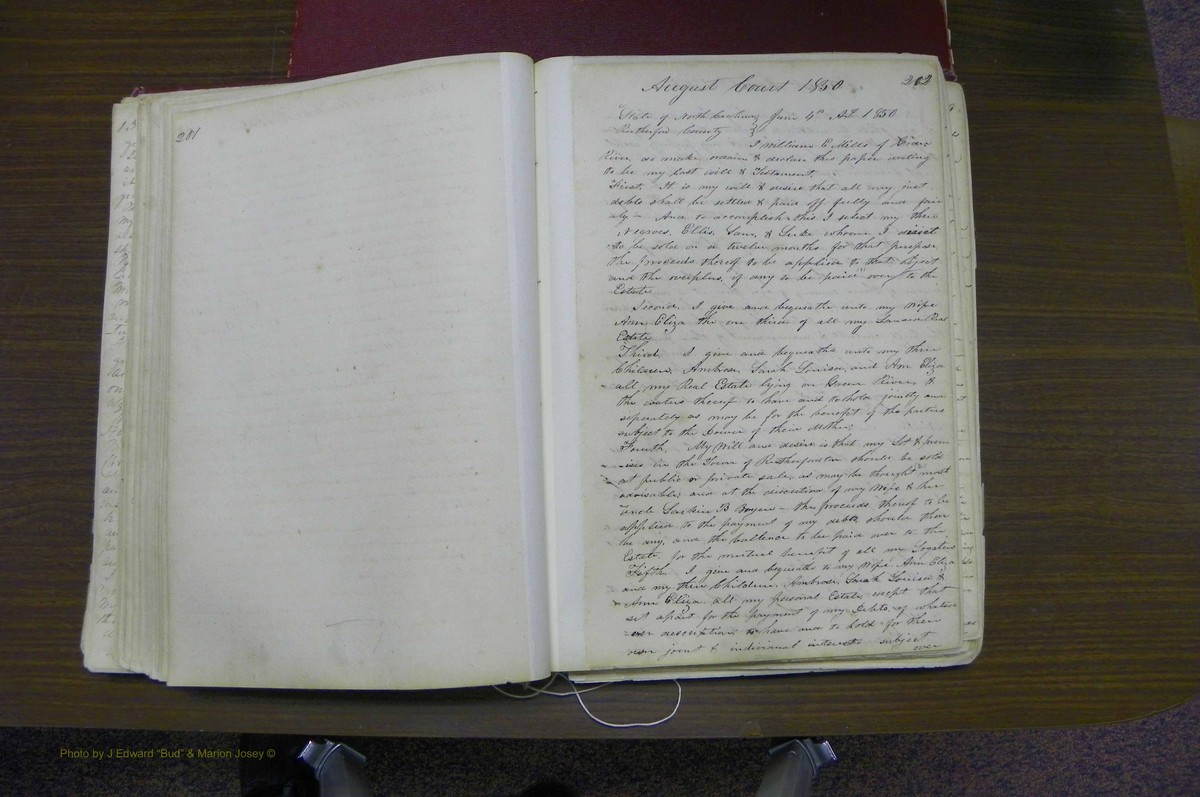 201
August Court 1850 202
State of North Carolina June 4th AD. 1850
Rutherford County }
I William E Mills of Green
River, do make ordain & declare this paper writing
to be my last will & Testament,
First. It is my will & desire that all my just
debts shall be settled & paid off fully and fair
aly - And to accomplish this I select my three
Negroes, Ellis, Sam, & Luke whom I direct
to be sold on a twelve months for that purpose
the proceeds thereof to be applied to that object
and the overplus, if any to be paid over to the
Estate
Second, I give and bequeathe unto my Wife
Ann Eliza the one third of all my Real
Estate
Third I give and bequeathe unto my three
Children, Ambrose, Sarah Louisa, and Ann Eliza
all my Real Estate lying on Green River, &
the waters thereof to have and to hold jointly and
seperately as may be for the benefit of the parties
subject to the Dower of their Mother,
Fourth, My Will and desire is that my Lot & prem
-ises in the Town of Rutherfordton should be sold
at public or private sale, as may be thought most
advisable, and at the discretion of my Wife & her
Uncle Larkin B - the proceeds thereof to be
applied to the payment of my debts, should there
be any, and the ballence to be paid over to the
Estate, for the mutual benefit of all my Legatees
Fifth I give and bequeathe to my Wife, Ann Eliza
and my three Children, Ambrose, Sarah Louisa &
Ann Eliza all my personal Estate, except that
set apart for the payment of my Debts, of whatso
-ever discription, to have and to hold for their
own joint & individual interests subject
over
Photo by J Edward "Bud" & Marion Josey ©